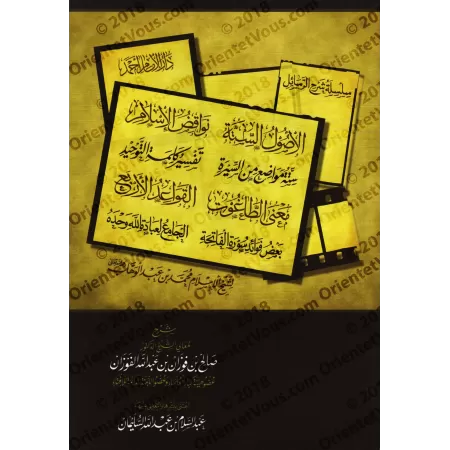 © 2018 OrientetVous.com
دار الإمام أحمد
سلسلة شرح الرسائل
الأصول الستة
نواقض الإسلام
ستة مواضع من السيرة
تفسير كلمة التوحيد
معنى الطاغوت
القواعد الأربع
بعض فوائد سورة الفاتحة
الجامع لعبادة الله وحده
لشيخ الإسلام محمد بن عبد الوهاب
شرح
معالي الشيخ الدكتور
صالح بن فوزان بن عبد الله الفوزان
عبد السلام بن عبد الله السليمان